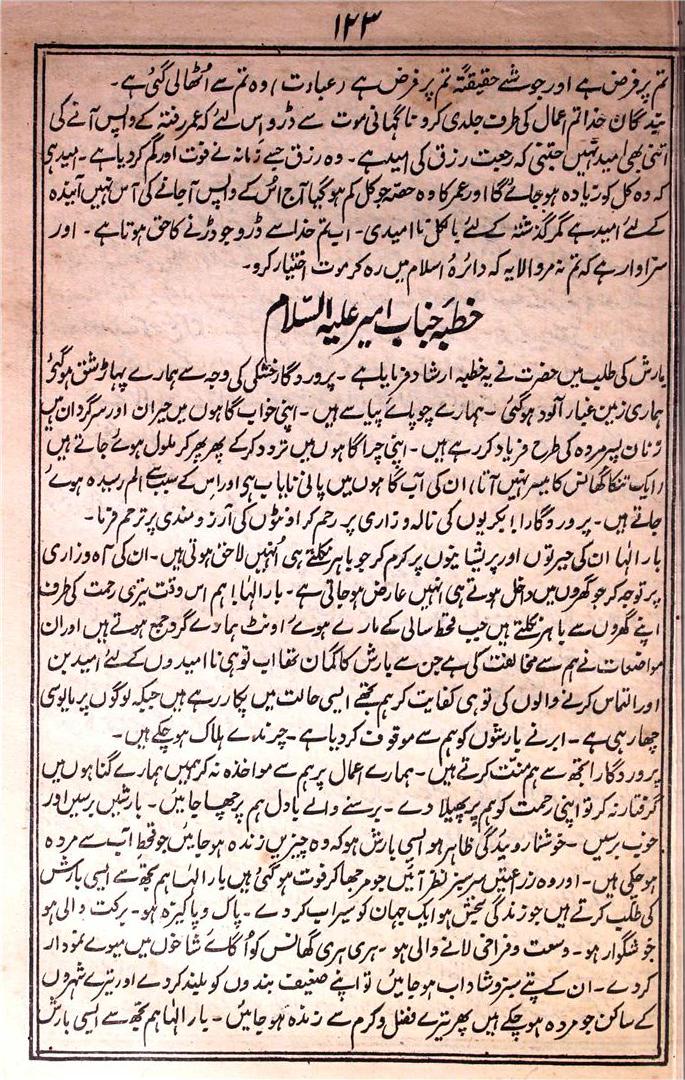 ۱۲۳
تم پر فرض ہے اور جو شے حقیقتہً تم پر فرض ہے (عبادت) وہ تم سے اُٹھالی گئی ہے۔
بندگان خدا تم اعمال کی طرف جلدی کرو ناگہانی موت سے ڈرو اِس لئے کہ عمر رفتہ کے واپس آنے کی
اتنی بھی امید نہیں جتنی کہ رجعت رزق کی امید ہے۔ وہ رزق جسے زمانہ نے فوت اور گم کر دیا ہے۔ امید ہی
کہ وہ کل کو زیادہ ہو جائے گا اور عمر کا وہ حصہ جو کل کم ہو گیا آج اُس کے واپس آجانے کی آس نہیں آیندہ
کے لئے امید ہے مگر گذشتہ کے لئے بالکل نا امیدی۔ اب تم خدا سے ڈرو جو ڈرنے کا حق ہوتا ہے۔ اور
سزاوار ہے کہ تم نہ مرو الا یہ کہ دائرہ اسلام میں رہ کر موت اختیار کرو۔
خطبہ جناب امیر علیہ السّلام
بارش کی طلب میں حضرت نے یہ خطبہ ارشاد فرمایا ہے۔ پروردگار خشکی کی وجہ سے ہمارے پہاڑ شق ہو گئی
ہماری زمین غبار آلود ہو گئی۔ ہمارے چوپائے پیاسے ہیں۔ اپنی خواب گاہوں میں حیران اور سرگردان ہیں
زنان پسر مردہ کی طرح فریاد کر رہے ہیں۔ اپنی چراگاہوں میں تردد کر کے پھر پھر کر ملول ہوئے جاتے ہیں
(ایک تنکا گھانس کا میسر نہیں آتا) ان کی آب گاہوں میں پانی نایاب ہی اور اس کے سبب سے الم رسیدہ ہوے
جاتے ہیں۔ پروردگارا! بکریوں کی نالہ و زاری پر رحم کر اونٹوں کی آرزو مندی پر ترحم فرما۔
بار الٰہا ان کی حیرتوں اور پریشانیوں پر کرم کر جو باہر نکلتے ہی اُنہیں لاحق ہوتی ہیں۔ ان کی آہ و زاری
پر توجہ کر جو گھروں میں داخل ہوتے ہی انہیں عارض ہو جاتی ہے۔ بار الٰہا! ہم اس وقت تیری رحمت کی طرف
اپنے گھروں سے باہر نکلتے ہیں جب قحط سالی کے مارے ہوے اونٹ ہمارے گرد جمع ہوتے ہیں اور ان
مواضعات نے ہم سے مخالفت کی ہے جن سے بارش کا گمان تھا اب تو ہی نا امیدوں کے لئے امید بن
اور التماس کرنے والوں کی تو ہی کفایت کر ہم تجھے ایسی حالت میں پکار رہے ہیں جبکہ لوگوں پر مایوسی
چھا رہی ہے۔ ابر نے بارشوں کو ہم سے موقوف کر دیا ہے۔ چرندے ہلاک ہو چکے ہیں۔
پروردگارا تجھ سے ہم منت کرتے ہیں۔ ہمارے اعمال پر ہم سے مواخذہ نہ کر ہمیں ہمارے گناہوں میں
گرفتار نہ کر تو اپنی رحمت کو ہم پر پھیلا دے۔ برسنے والے بادل ہم پر چھا جائیں۔ بارشیں برسیں اور
خوب برسیں۔ خوشنما روئیدگی ظاہر ہو ایسی بارش ہو کہ وہ چیزیں زندہ ہو جائیں جو قحط آب سے مردہ
ہو چکی ہیں۔ اور وہ زراعتیں سرسبز نظر آئیں جو مرجھا کر فوت ہو گئی ہیں بار الٰہا ہم تجھ سے ایسی بارش
کی طلب کرتے ہیں جو زندگی بخش ہو ایک جہان کو سیراب کر دے۔ پاک و پاکیزہ ہو۔ برکت والی ہو
خوشگوار ہو۔ وسعت و فراخی لانے والی ہو۔ ہری ہری گھانس کو اُگائے شاخوں میں میوے نمودار
کر دے۔ ان کے پتے سبز و شاداب ہو جائیں تو اپنے ضعیف بندوں کو بلند کر دے اور تیرے شہروں
کے ساکن جو مردہ ہو چکے ہیں پھر تیرے فضل و کرم سے زندہ ہو جائیں۔ بار الٰہا ہم تجھ سے ایسی بارش